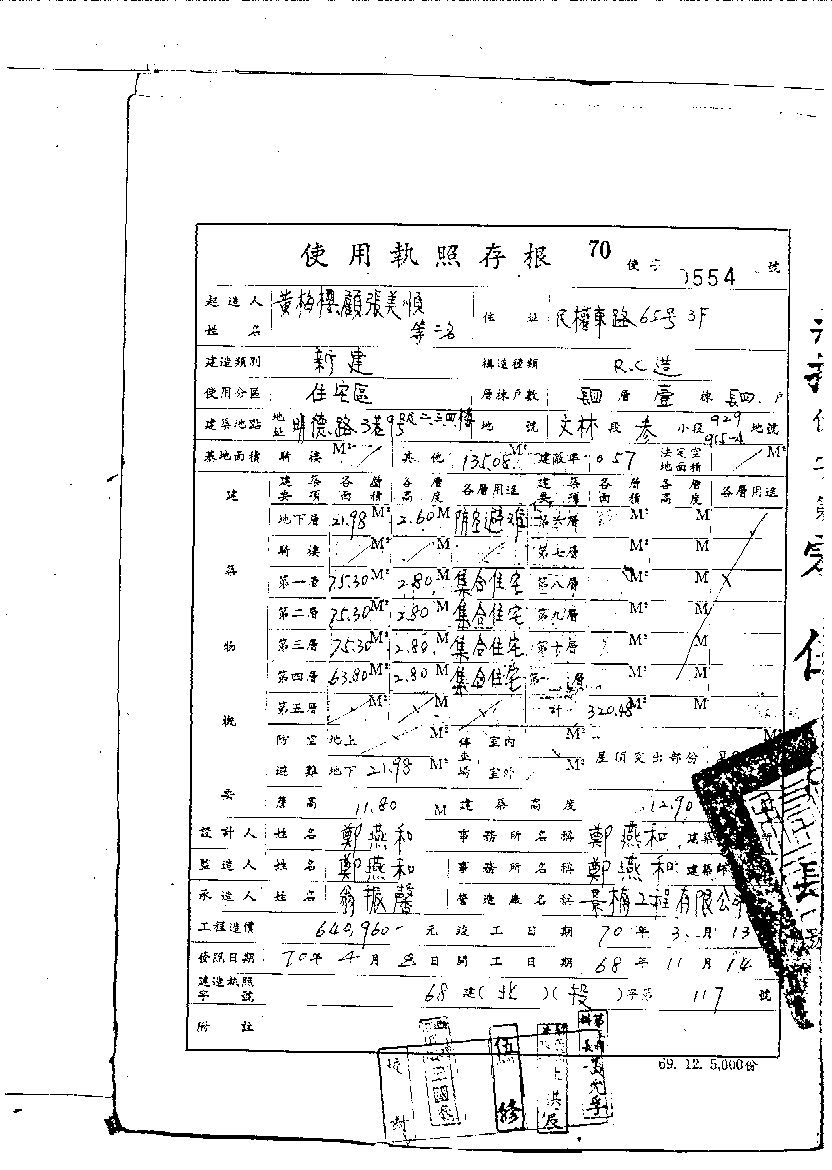 使用執照存根 70 使字 0554 號
起造人姓名 黃梅櫻、顧張美順等二名 住址 民權東路65号3F
建造類別 新建 構造種類 R.C造
使用分區 住宅區 層棟戶數 四層壹棟四戶
建築地點 地址 明德路3巷9号 二.三.四樓 地號 文林段叁小段929 915-4地號
基地面積 騎樓 M² 其他 135.05M² 建蔽率 0.57 法定空地面積 M²
建築物概要 建築要項 各層面積 各層高度 各層用途 建築要項 各層面積 各層高度 各層用途
地下層 21.98M² 2.60M 防空避難 第六層 M² M
騎樓 M² M 第七層 M² M
第一層 75.30M² 2.80M 集合住宅 第八層 M² M
第二層 75.30M² 2.80M 集合住宅 第九層 M² M
第三層 75.30M² 2.80M 集合住宅 第十層 M² M
第四層 63.80M² 2.80M 集合住宅 第 層 M² M
第五層 M² M 計 320.48M²
防空避難 地上 M² 停車場 室內 M² 屋頂突出部份
地下 21.98M² 室外 M²
簷高 11.80M 建築高度 12.90
設計人 姓名 鄭燕和 事務所名稱 鄭燕和 建築
監造人 姓名 鄭燕和 事務所名稱 鄭燕和 建築師
承造人 姓名 翁振馨 營造廠名稱 景楠工程有限公司
工程造價 640,960- 元 竣工日期 70年3月13
發照日期 70年4月 日 開工日期 68年11月14
建造執照字號 68建(北)(投)字第117號
附註
69. 12. 5,000份
校對
伍修